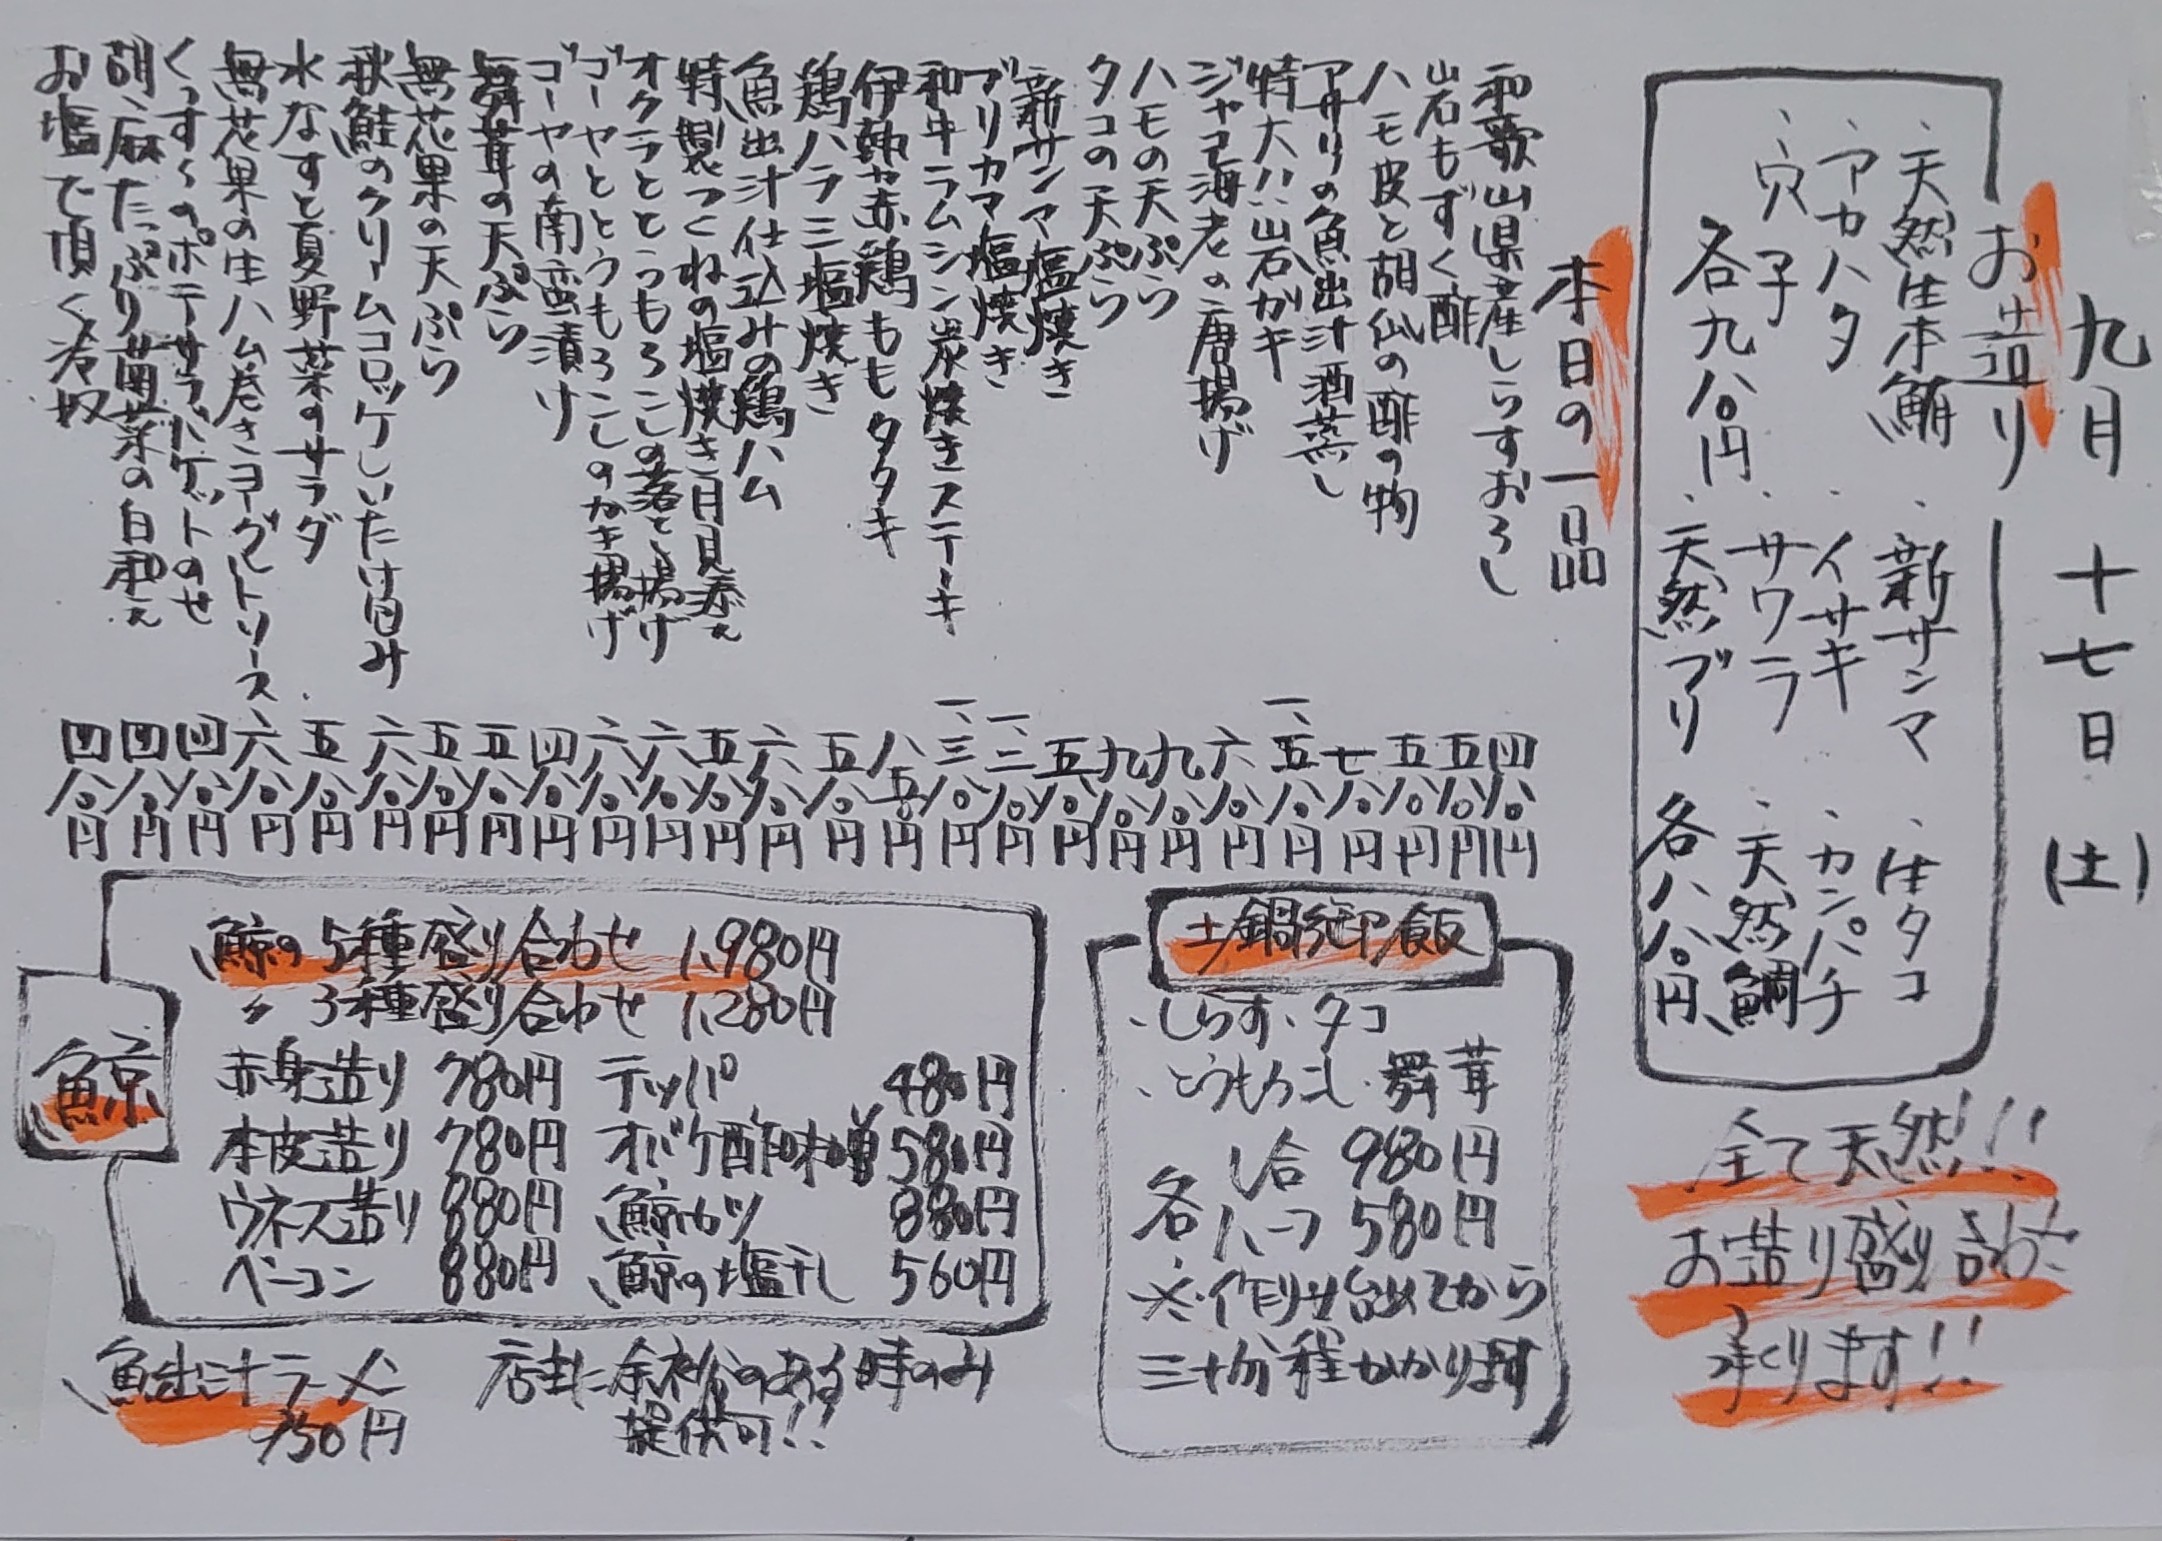 九月十七日(土)
お造り
・天然生本鮪
・アカハタ
・穴子
各九八〇円
・新サンマ
・イサキ
・サワラ
・天然ブリ
・生タコ
・カンパチ
・天然鯛
各八八〇円
全て天然!!
お造り盛り合わせ
承ります!!
本日の一品
和歌山県産しらすおろし 四八〇円
岩もずく酢 五八〇円
ハモ皮と胡瓜の酢の物 五八〇円
アサリの魚出汁酒蒸し 七八〇円
特大!!岩ガキ 一、五八〇円
ジャコ海老の唐揚げ 六八〇円
ハモの天ぷら 九八〇円
タコの天ぷら 九八〇円
新サンマ塩焼き 五八〇円
ブリカマ塩焼き 一、二八〇円
和牛ラムシン炭焼きステーキ 一、三八〇円
伊勢赤鶏ももタタキ 八五〇円
鶏ハラミ塩焼き 五八〇円
魚出汁仕込みの鶏ハム 六八〇円
特製つくねの塩焼き月見添え 五八〇円
オクラととうもろこしの落とし揚げ 六八〇円
ゴーヤととうもろこしのかき揚げ 六八〇円
ゴーヤの南蛮漬け 四八〇円
舞茸の天ぷら 五八〇円
無花果の天ぷら 五八〇円
秋鮭のクリームコロッケしいたけ包み 六八〇円
水なすと夏野菜のサラダ 五八〇円
無花果の生ハム巻きヨーグルトソース 六八〇円
くっすくのポテサラバケットのせ 四八〇円
胡麻たっぷり菊菜の白和え 四八〇円
お塩で頂く冷奴 四八〇円
土鍋御飯
・しらす・タコ
・とうもろこし・舞茸
各 一合 980円
ハーフ 580円
※作り出してから
三十分程かかります
鯨
鯨の5種盛り合わせ 1,980円
〃 3種盛り合わせ 1,280円
赤身造り 780円
本皮造り 780円
ウネス造り 880円
ベーコン 880円
テッパ 480円
オバケ酢味噌 580円
鯨カツ 880円
鯨の塩干し 560円
魚出汁ラーメン
750円
店主に余裕のある時のみ
提供可!!